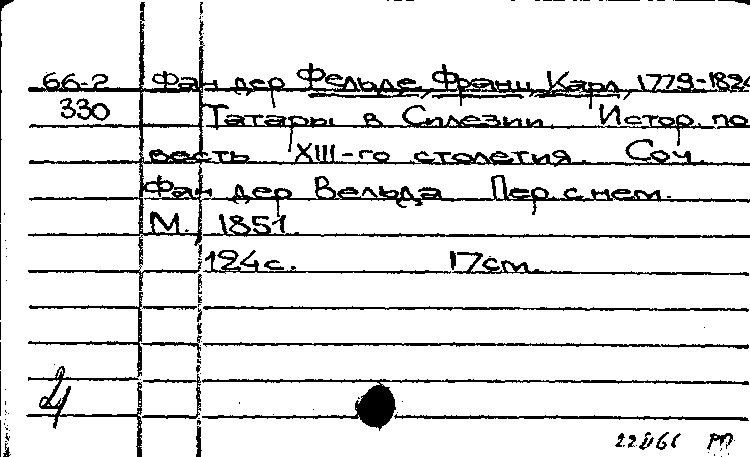 66-2 Фан дер Фельде, Франц Карл, 1779-1824
330 Татары в Силезии. Истор. по
весть XIII-го столетия. Соч.
Фан дер Вельда. Пер. с нем.
М., 1851.
124с. 17см.